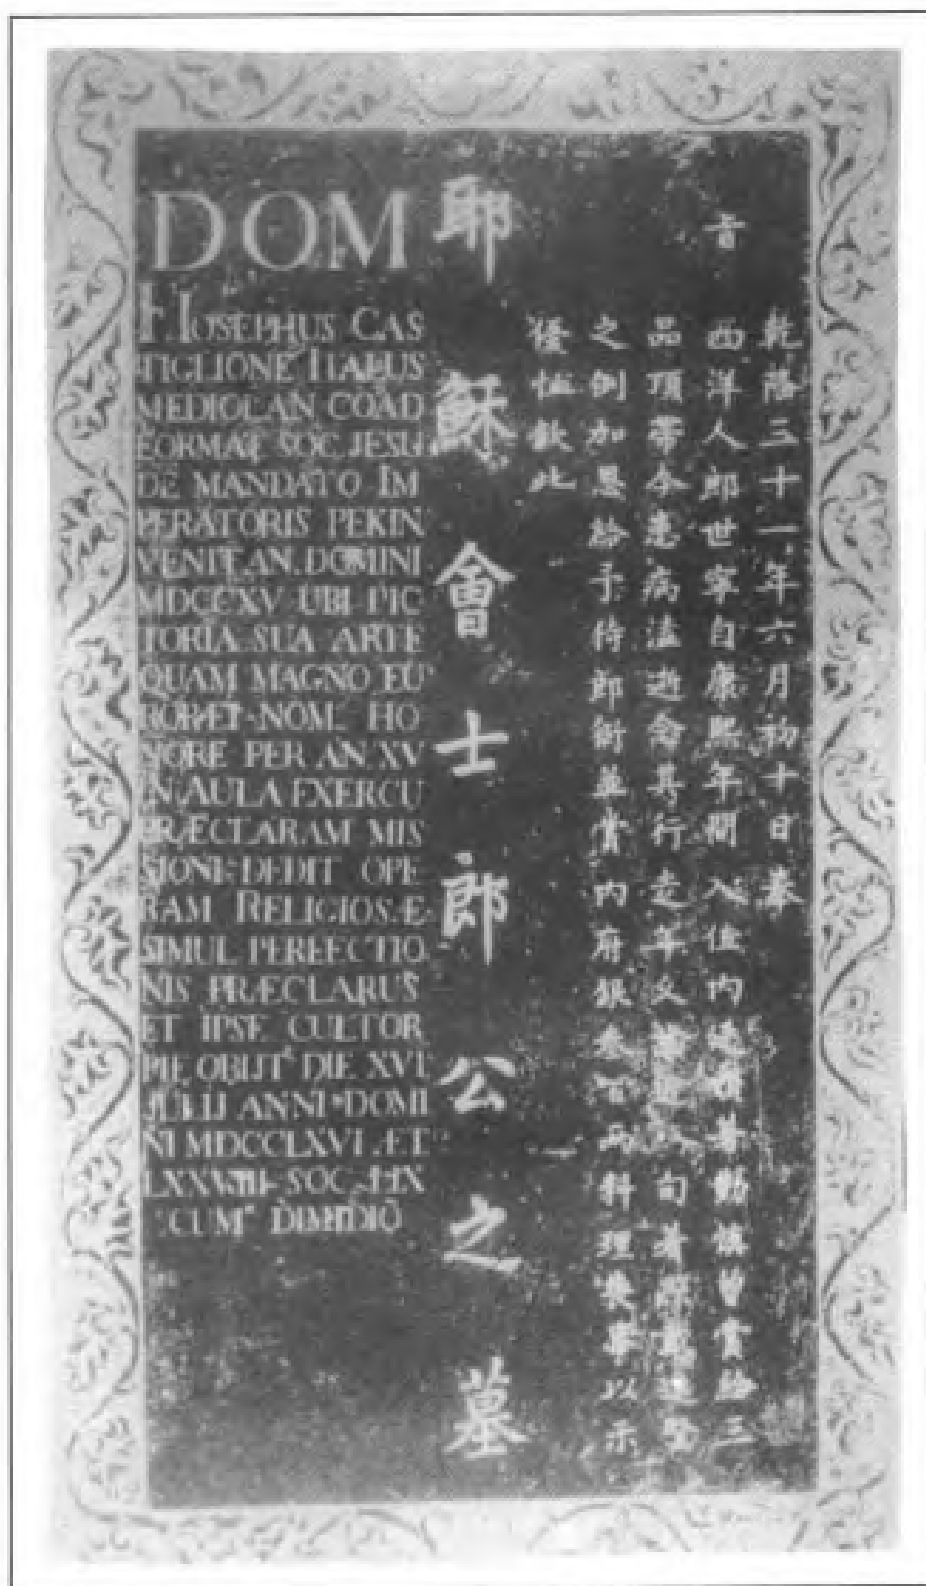 DOM
F. IOSEPHUS CAS
TIGLIONE ITALUS
MEDIOLAN COAD
FORMAT SOC JESU
DE MANDATO IM
PERATORIS PEKIN
VENIT AN. DOMINI
MDCCXV UBI PIC
TORIA SUA ARTE
QUAM MAGNO EU
ROP ET NOM HO
NORE PER AN XV
IN AULA EXERCU
PRÆCLARAM MIS
SIONI DEDIT OPE
RAM RELIGIOSÆ
SIMUL PERFECTIO
NIS PRÆCLARUS
ET IPSE CULTOR
PIE OBIJT DIE XVI
JULIJ ANNI DOMI
NI MDCCLXVI ÆT
LXXVIII SOC LIX
CUM DIMIDIO
耶穌會士郎公之墓
乾隆三十一年六月初十日奉
旨西洋人郎世寧自康熙年間入值內廷頗著勤慎曾賞給三
品頂帶今患病溘逝念其行走年久齒近八旬著照戴進賢
之例加恩給予侍郎銜並賞內府銀叁百兩料理喪事以示
優恤欽此